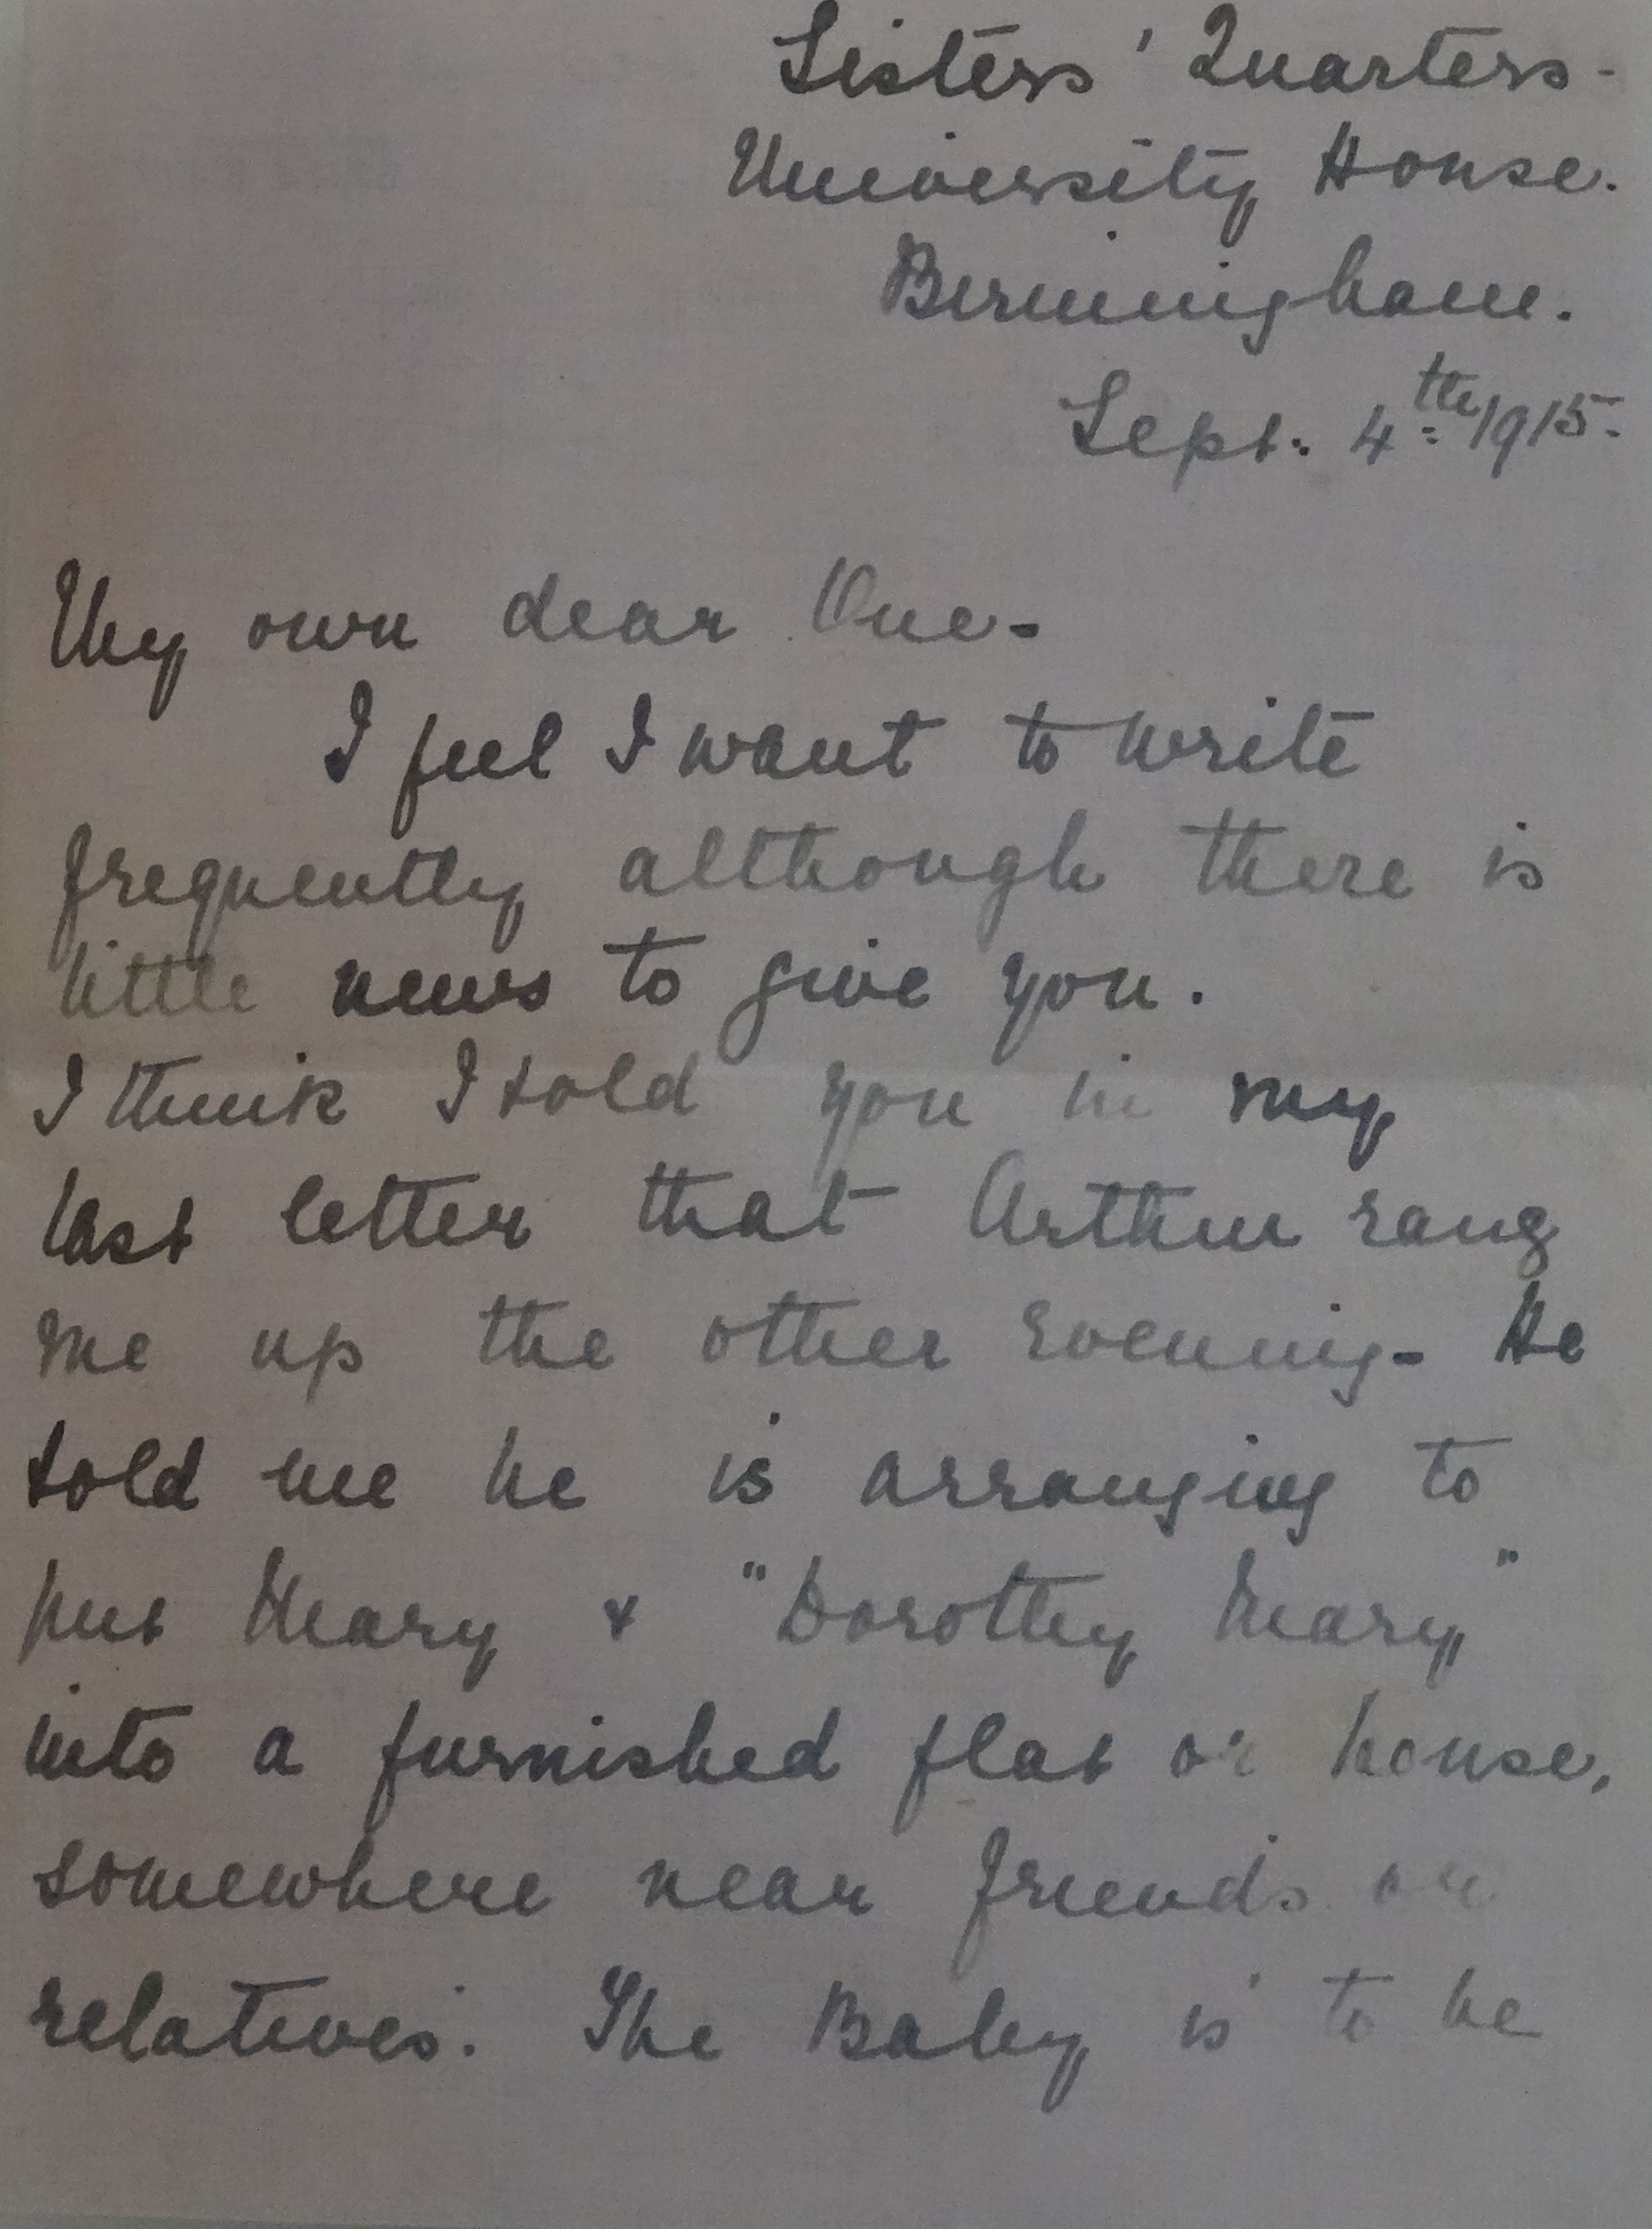 Sisters' Quarters-
University House.
Birmingham.
Sept. 4th 1915.
My own dear One-
I feel I want to write
frequently although there is
little news to give you.
I think I told you in my
last letter that Arthur rang
me up the other evening- He
told me he is arranging to
put Mary & "Dorothy Mary"
into a furnished flat or house,
somewhere near friends or
relatives. The Baby is to be